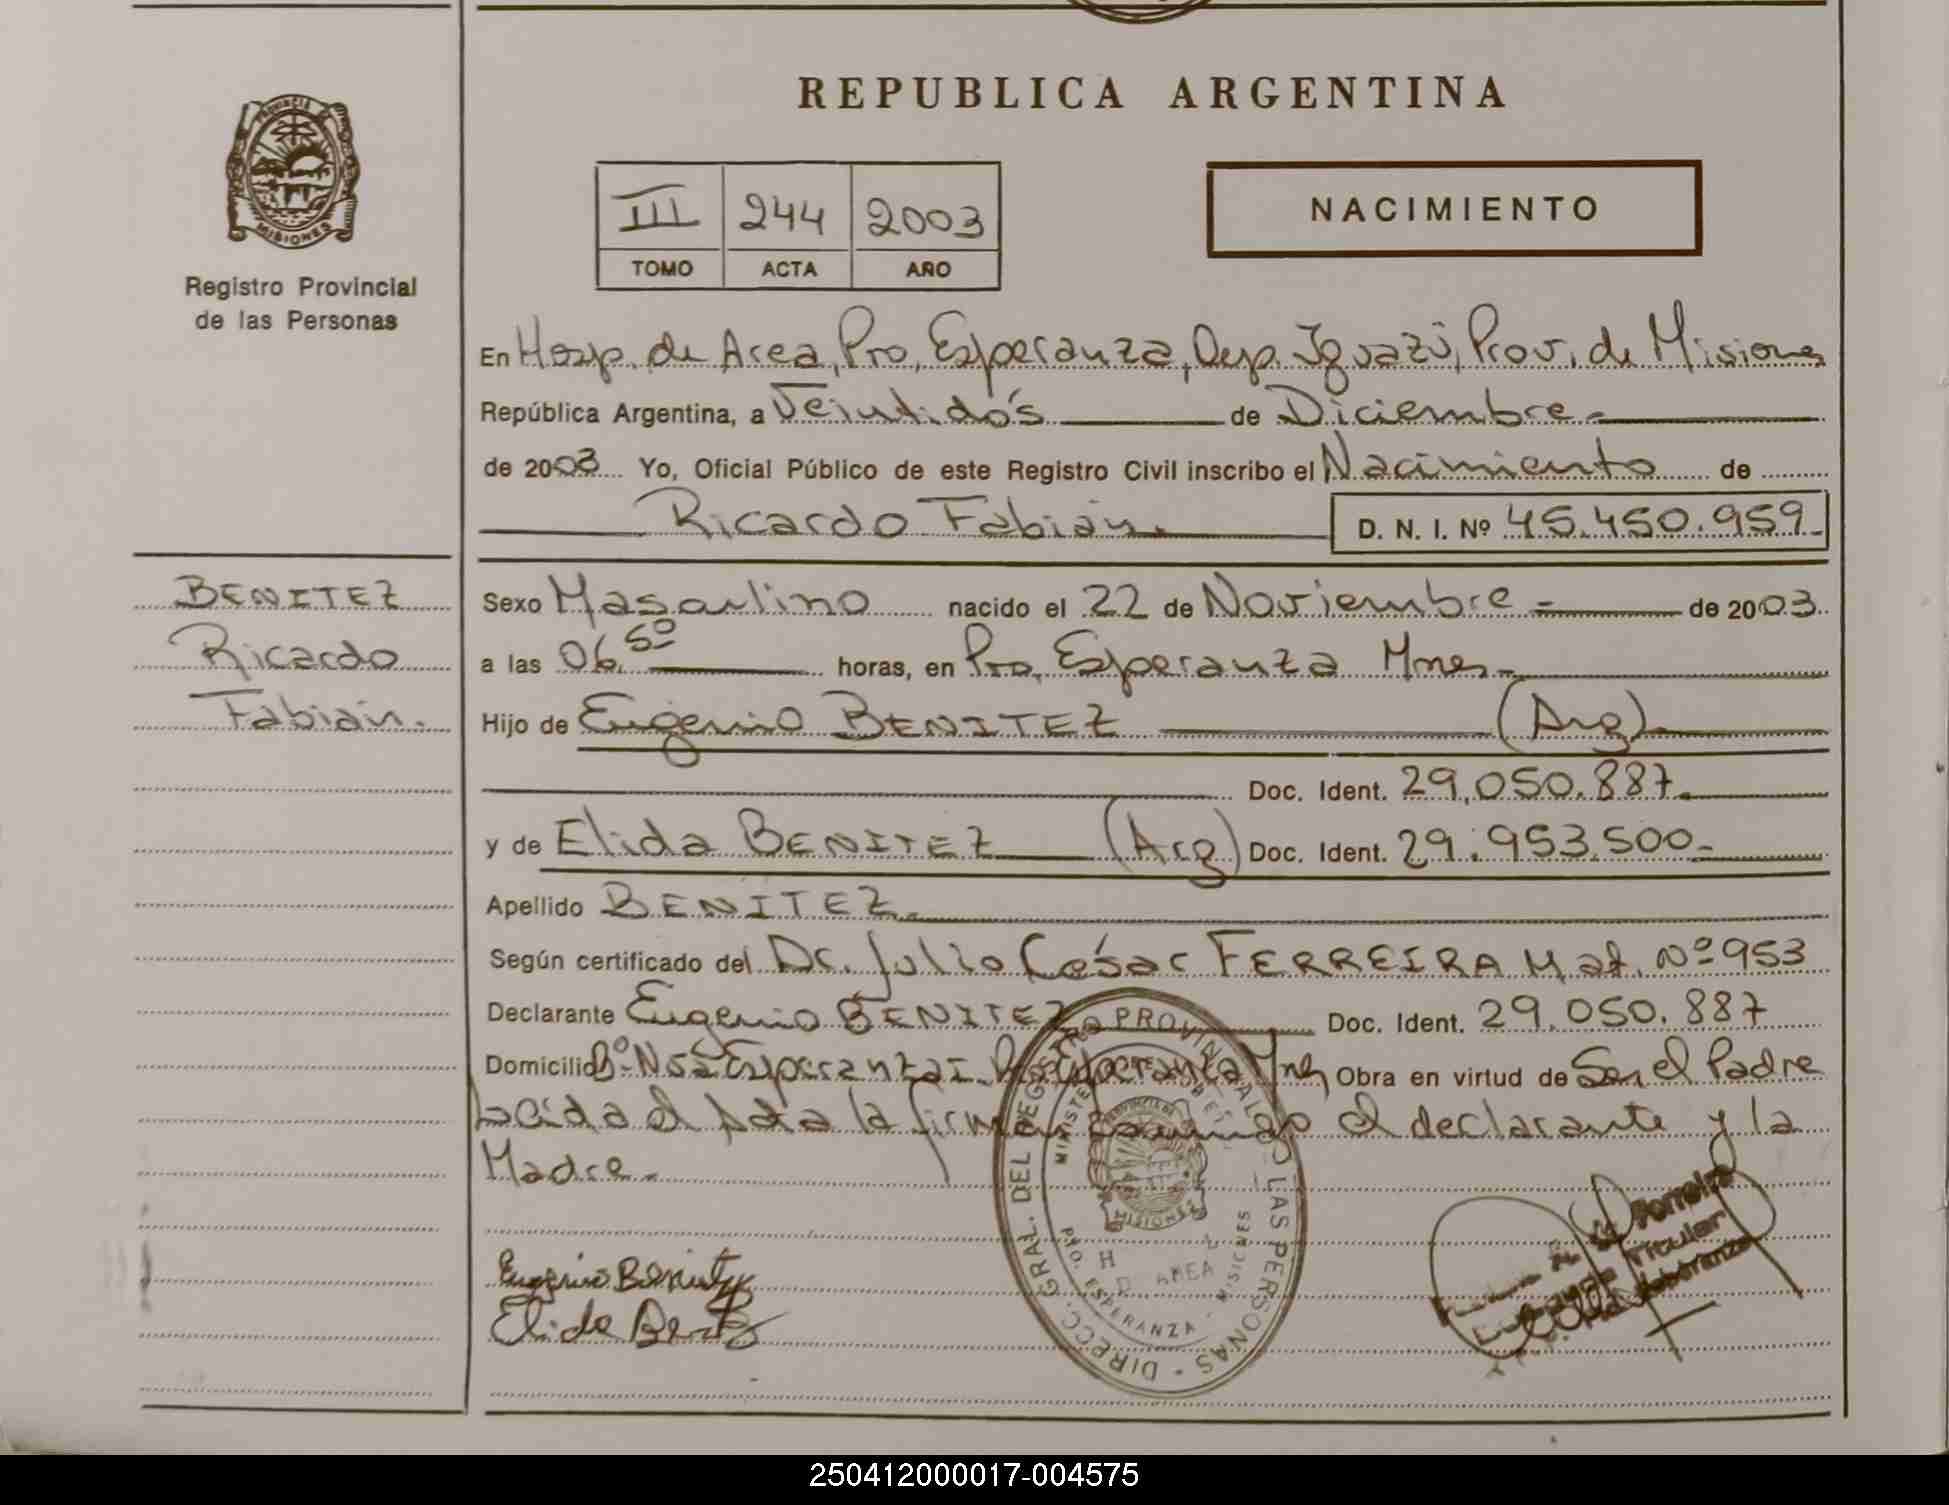 REPUBLICA ARGENTINA
PROVINCIA DE
MISIONES
Registro Provincial
de las Personas
III 244 2003
TOMO ACTA AÑO
NACIMIENTO
En Hosp. de Area, Pto, Esperanza, Dep. Iguazú, Prov. de Misiones
República Argentina, a Veintidós de Diciembre.-
de 2003 Yo, Oficial Público de este Registro Civil inscribo el Nacimiento de
Ricardo Fabián. D. N. I. Nº 45.450.959.-
BENITEZ
Ricardo
Fabián.
Sexo Masculino nacido el 22 de Noviembre - de 2003.
a las 06.50 horas, en Pto. Esperanza Mnes.-
Hijo de Eugenio BENITEZ (Arg)
Doc. Ident. 29.050.887.
y de Elida BENITEZ (Arg) Doc. Ident. 29.953.500.-
Apellido BENITEZ.
Según certificado del Dr. Julio César FERREIRA Mat. Nº 953
Declarante Eugenio BENITEZ Doc. Ident. 29.050.887
Domicilio Bº. Nva Esperanza Pto Esperanza Mnes Obra en virtud de Ser el Padre
Leída el Acta la firman Conmigo el declarante y la
Madre.-
DIRECC. GRAL. DEL REGISTRO PROVINCIAL DE LAS PERSONAS
PTO. ESPERANZA - MISIONES
MISIONES
AREA
Eugenio Benitez
Elida Benitez
Ferreira
Titular
250412000017-004575